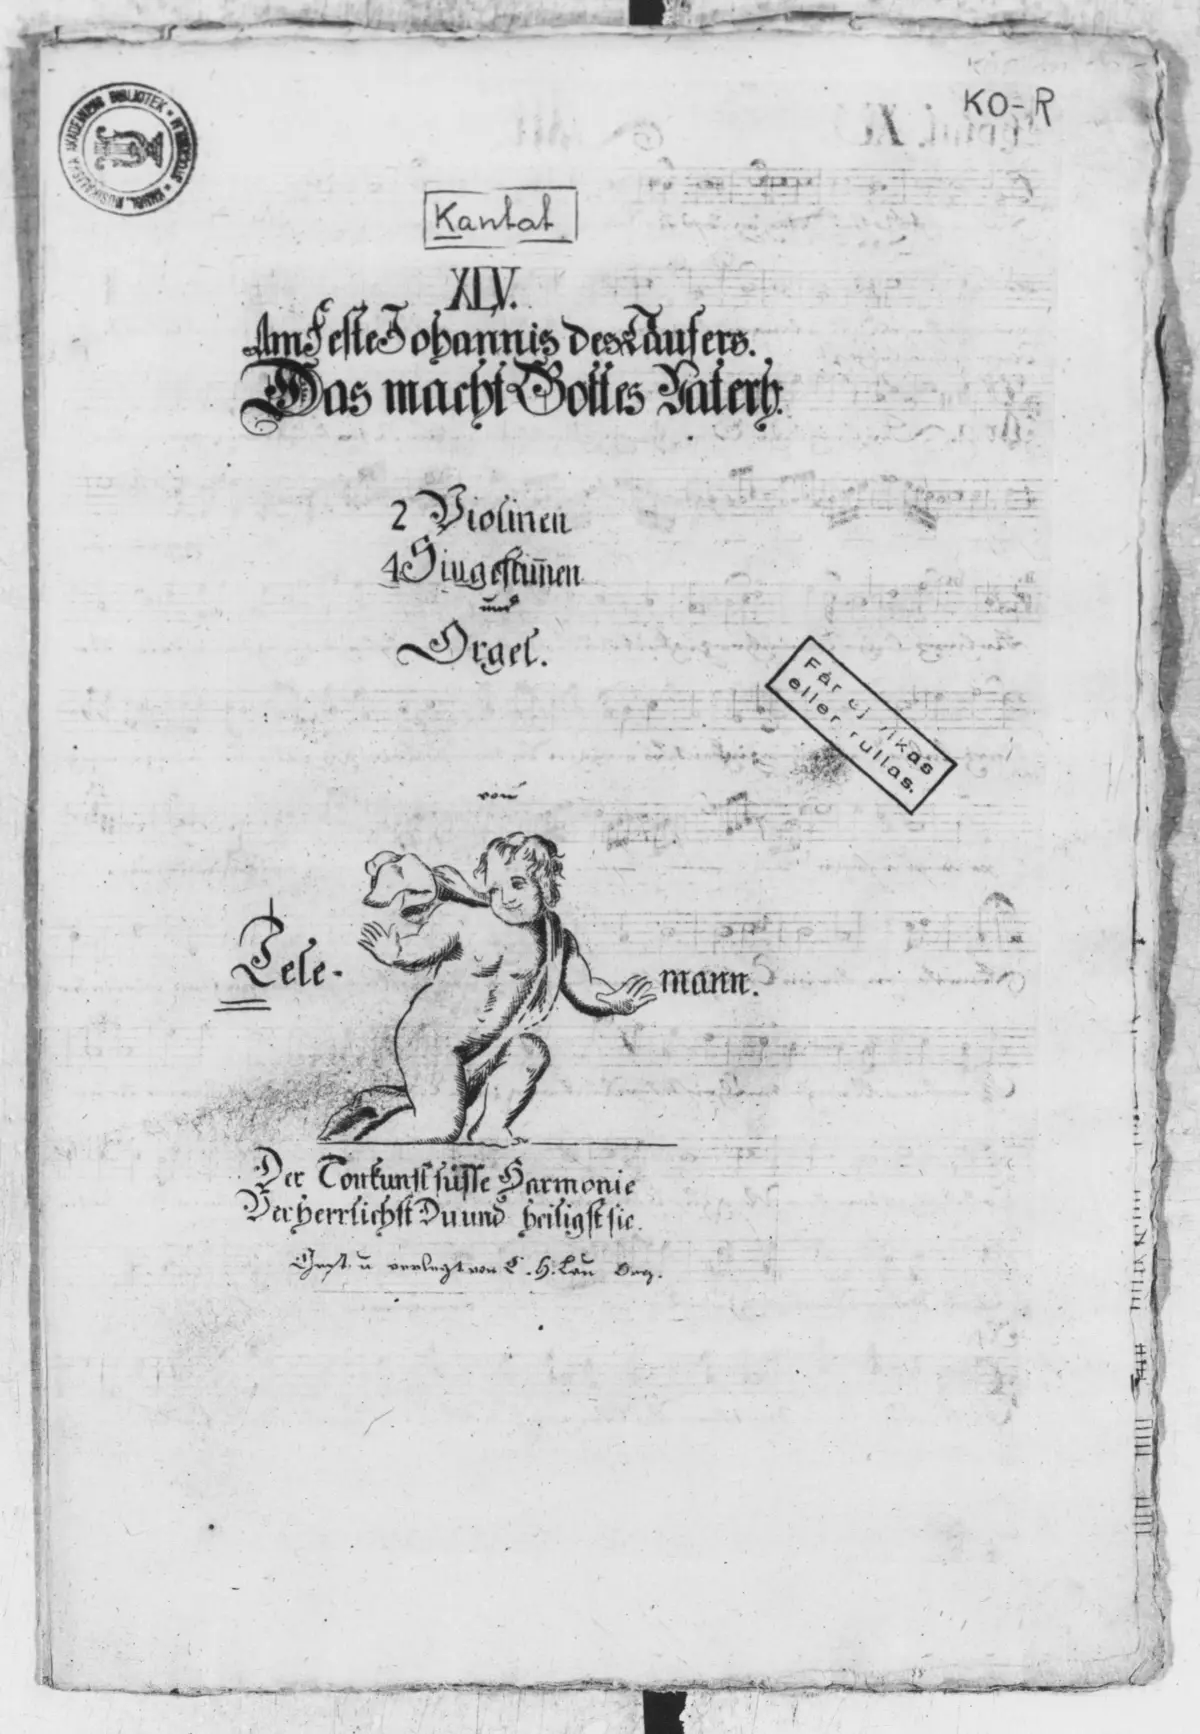 KONGL. MUSIKALISKA AKADEMIENS BIBLIOTEK
KO-R
Kantat
XLV.
Am Feste Johannis des Täufers.
Das macht Gottes Vaterh:
2 Violinen
4 Singestim̄en
und
Orgel.
Får ej vikas
eller rullas.
von
Tele-
mann.
Der Tonkunst süsse Harmonie
Verherrlichst Du und heiligst sie.
u verlegt von C. H. Lau